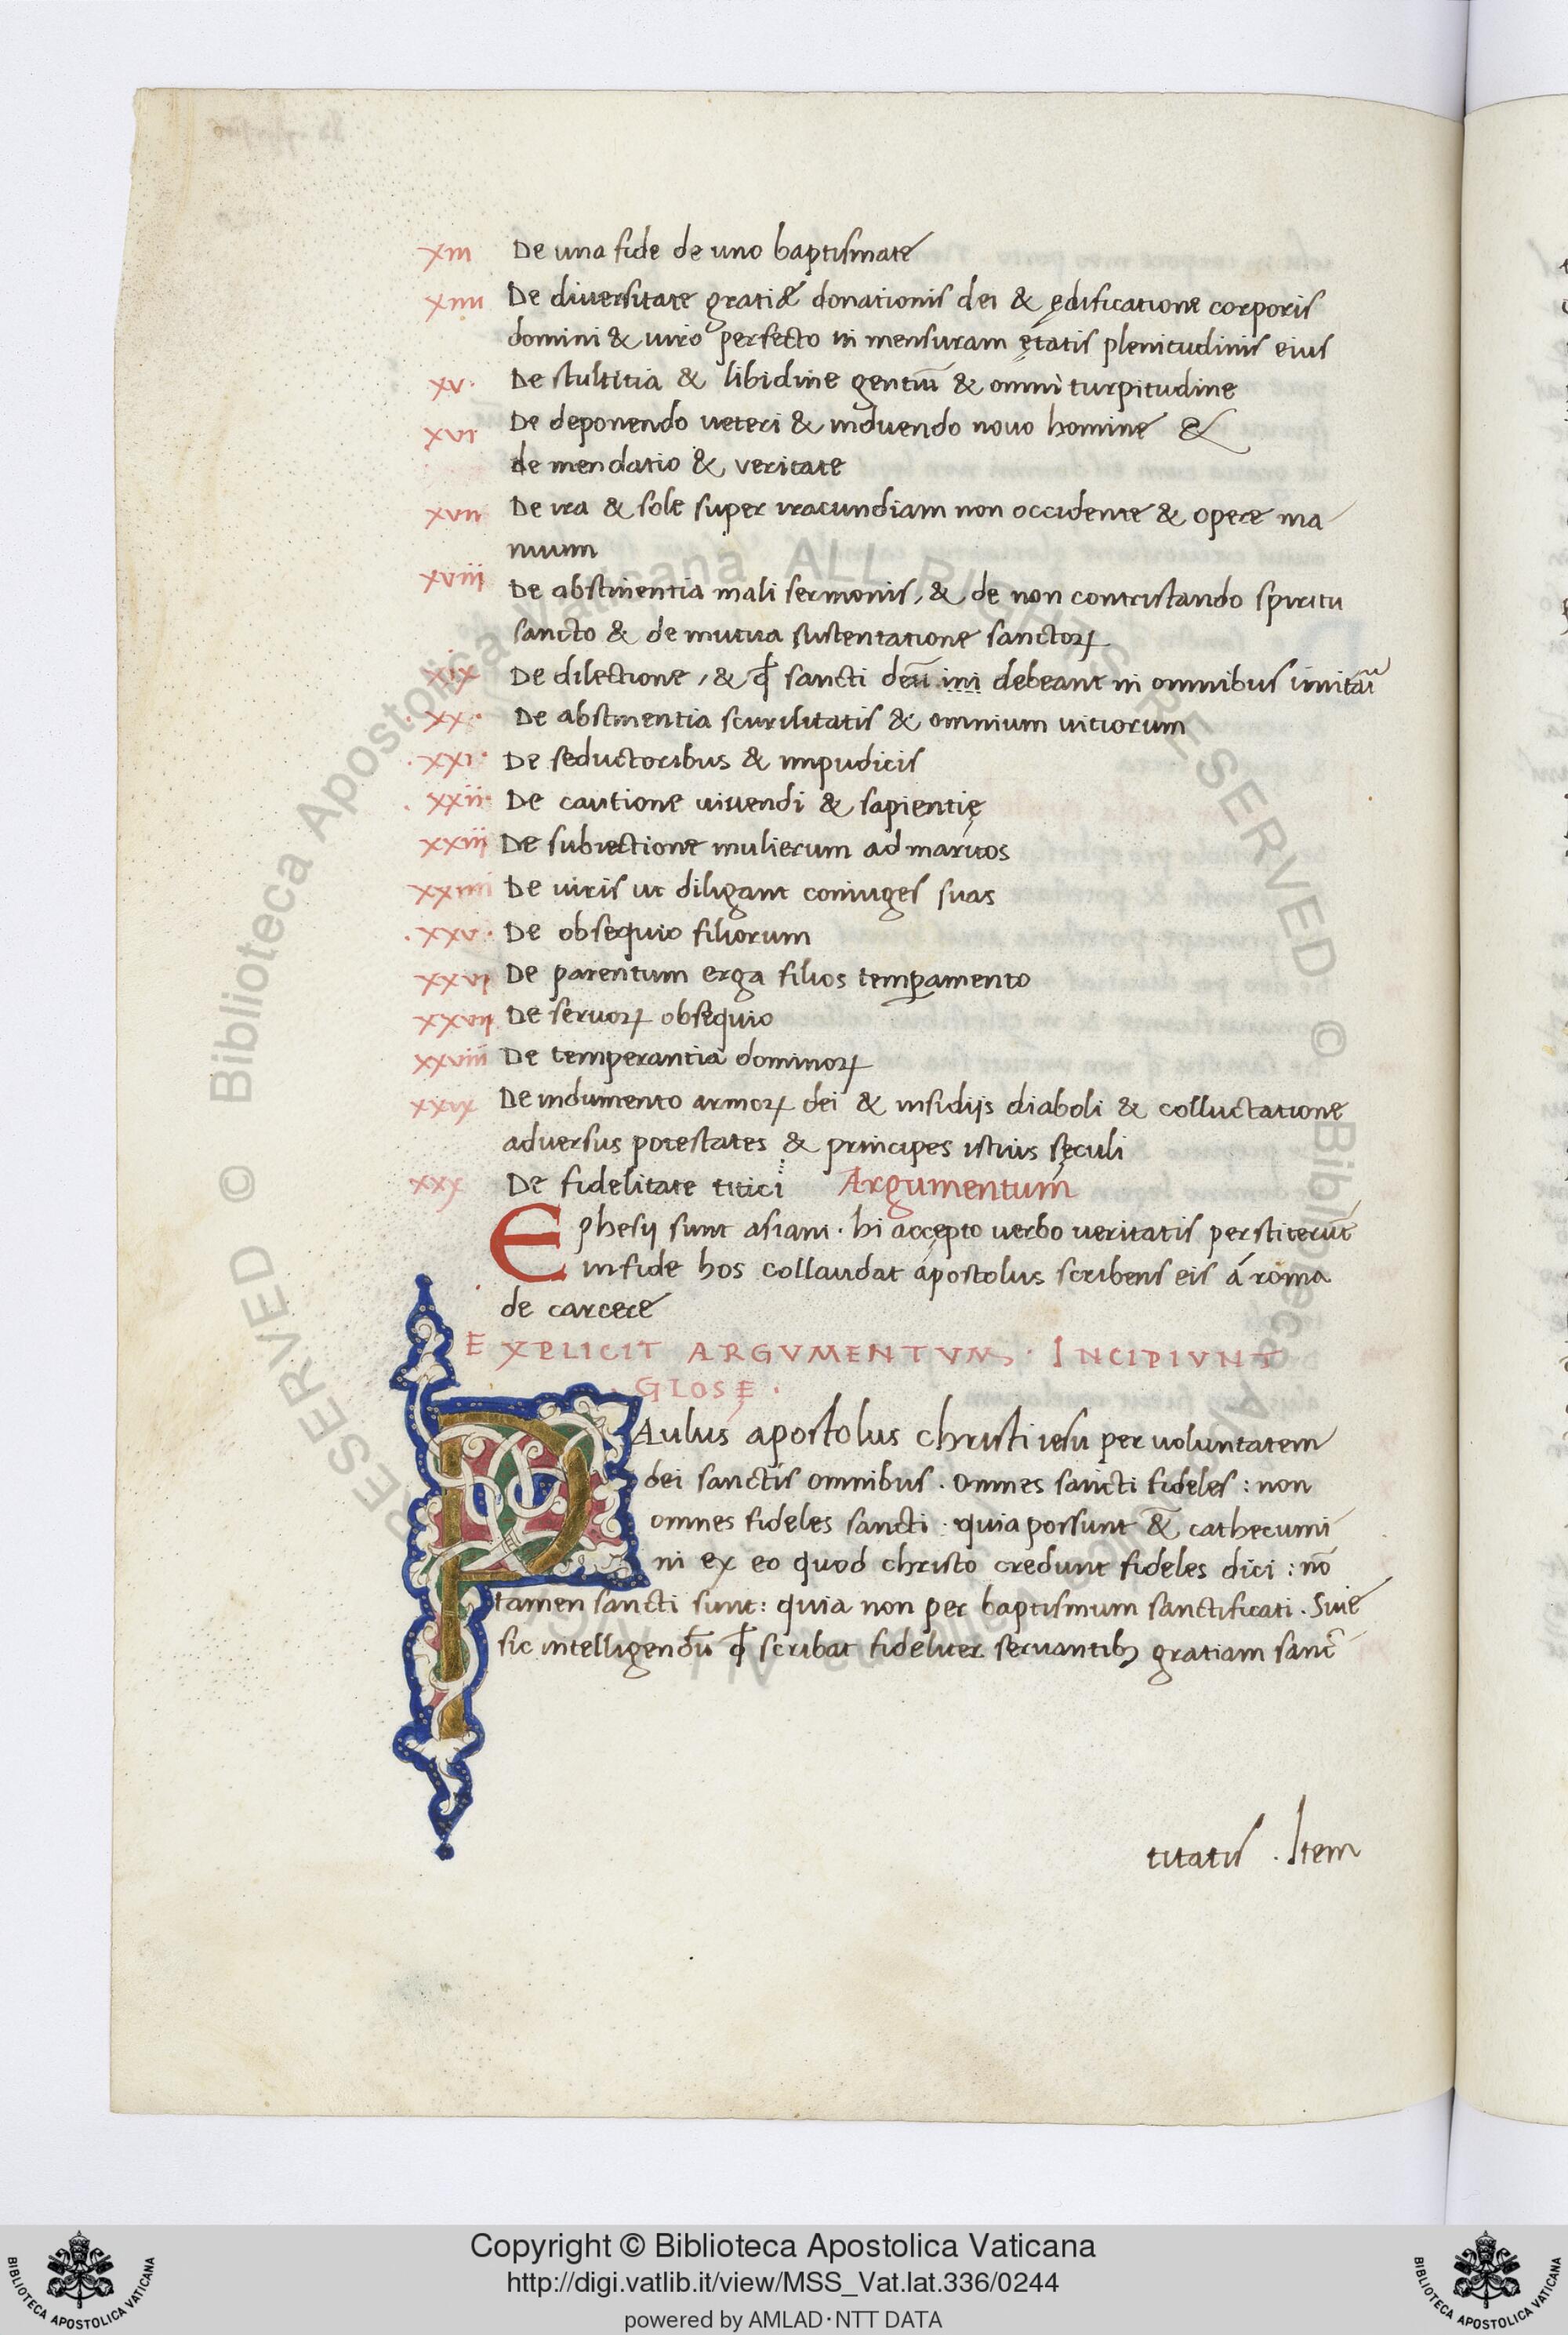 xiii De una fide de uno baptismate
xiiii De diversitate gratiæ donationis dei & ędificatione corporis
domini & uiro perfecto in mensuram ętatis plenitudinis eius
xv· De stultitia & libidine gentiū & omni turpitudine
xvi De deponendo ueteri & induendo nouo homine &
de mendatio & veritate
xvii De ira & sole super iracundiam non occidente & opere ma
nuum
xviii De abstinentia mali sermonis, & de non contristando spiritu
sancto & de mutua sustentatione sanctoꝝ
xix De dilectione, & ꝙ sancti deū ini debeant in omnibus imitari
·xx· De abstinentia scurilitatis & omnium uitiorum
·xxi· De seductoribus & impudicis
·xxii· De cautione uiuendi & sapientię
xxiii De subiectione mulierum ad maritos
xxiiii De uiris ut diligant coniuges suas
·xxv· De obsequio filiorum
xxvi De parentum erga filios temꝑamento
xxvii De seruoꝝ obsequio
xxviii De temperantia dominoꝝ
xxix De indumento armoꝝ dei & insidijs diaboli & colluctatione
adversus potestates & principes istius sęculi
xxx De fidelitate titici Argumentum
Ephesij sunt asiani· hi accępto uerbo ueritatis perstiterūt
in fide hos collaudat apostolus scribens eis á roma
de carcere
EXPLICIT ARGVMENTVM· INCIPIVNT
GLOSĘ·
PAulus apostolus christi iesu per uoluntatem
dei sanctis omnibus. Omnes sancti fideles: non
omnes fideles sancti· quia possunt & cathecumi
ni ex eo quod christo credunt fideles dici: nō
tamen sancti sunt: quia non per baptismum sanctificati. Siue
sic intelligendū ꝙ scribat fideliter seruantibꝫ gratiam sanc
titatis. Item
© Biblioteca Apostolica Vaticana ALL RIGHTS RESERVED © Biblioteca Apostolica Vaticana ALL RIGHTS RESERVED
Copyright © Biblioteca Apostolica Vaticana
http://digi.vatlib.it/view/MSS_Vat.lat.336/0244
powered by AMLAD·NTT DATA
BIBLIOTECA APOSTOLICA VATICANA
BIBLIOTECA APOSTOLICA VATICANA